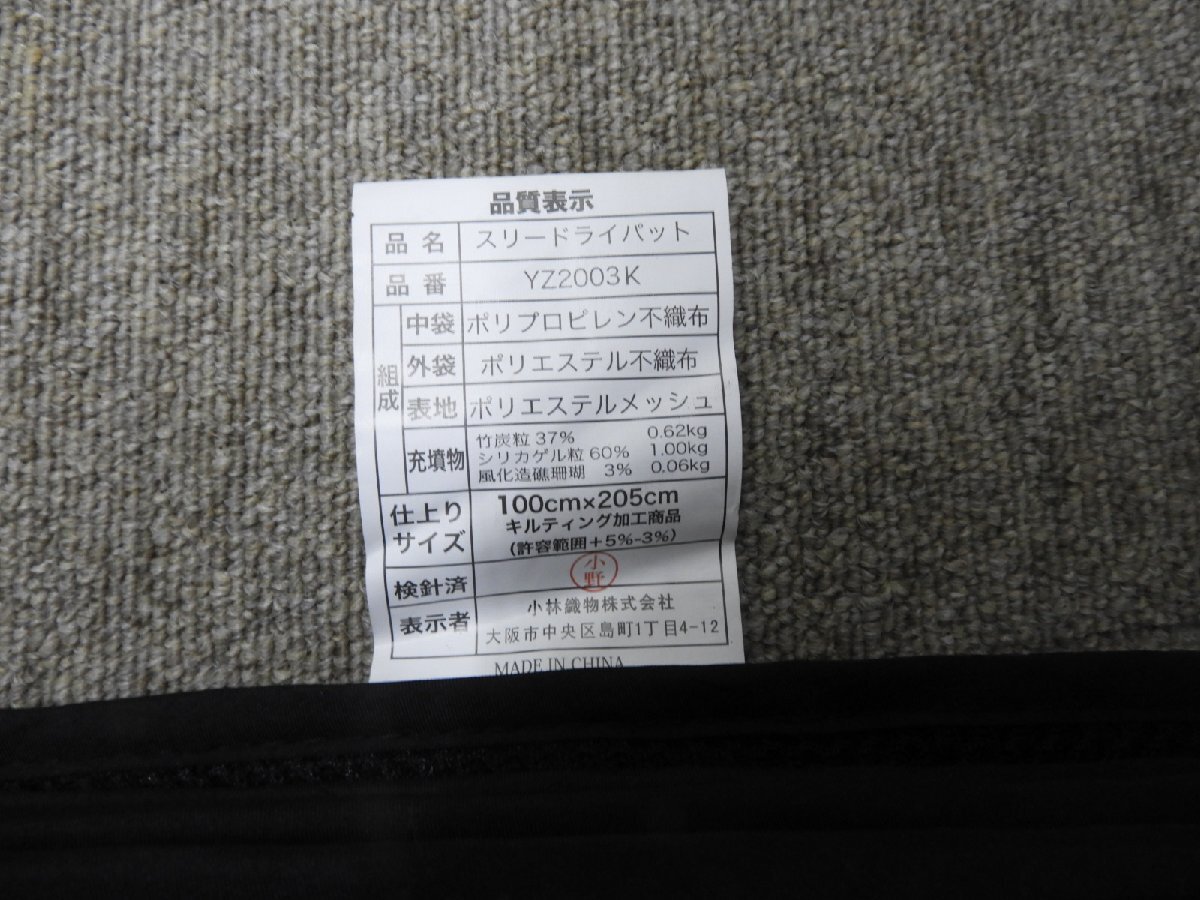 品質表示
品名 スリードライパット
品番 YZ2003K
組成
中袋 ポリプロピレン不織布
外袋 ポリエステル不織布
表地 ポリエステルメッシュ
充填物
竹炭粒 37% 0.62kg
シリカゲル粒 60% 1.00kg
風化造礁珊瑚 3% 0.06kg
仕上り
サイズ
100cm×205cm
キルティング加工商品
(許容範囲+5%-3%)
検針済 小野
表示者
小林織物株式会社
大阪市中央区島町1丁目4-12
MADE IN CHINA